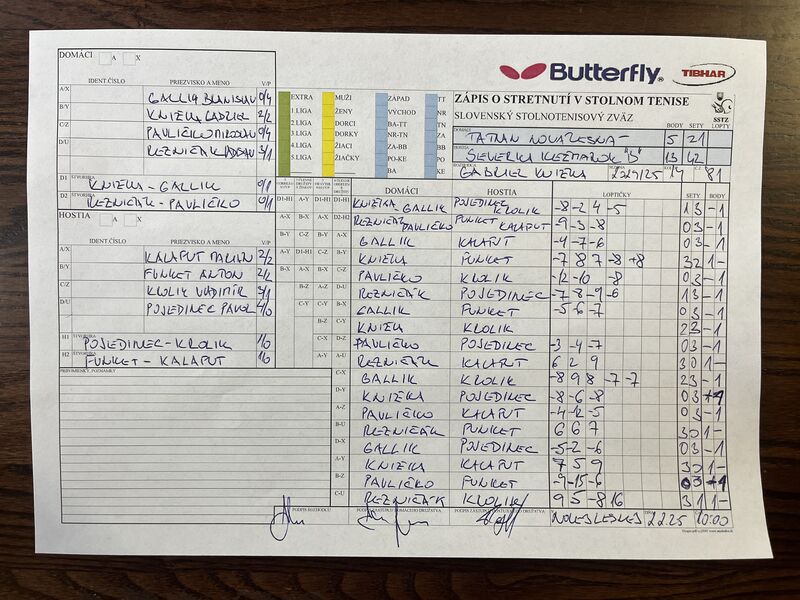 DOMÁCI A X
Butterfly TIBHAR
IDENT.ČÍSLO PRIEZVISKO A MENO V/P
EXTRA MUŽI ZÁPAD TT
ZÁPIS O STRETNUTÍ V STOLNOM TENISE
SLOVENSKÝ STOLNOTENISOVÝ ZVÄZ
SSTZ
BODY SETY LOPTY
A/X GALLIK BRANISLAV 0/4
1.LIGA ŽENY VÝCHOD NR
B/Y KNIŽKA GABRIEL 2/2
2.LIGA DORCI BA-TT TN
C/Z PAVLIČKO MIROSLAV 0/4
3.LIGA DORKY NR-TN ZA
D/U REZNIČÁK 3/1
4.LIGA ŽIACI ZA-BB BB
5.LIGA ŽIAČKY PO-KE PO
BA KE
TATRAN 5 21
SEVERKA KEŽMAROK "B" 13 42
GABRIEL KNIŽKA 2024/25 81
D1 ŠTVORHRA KNIŽKA - GALLIK 0/1
D2 ŠTVORHRA REZNIČÁK - PAVLIČKO 0/1
HOSTIA A X
IDENT.ČÍSLO PRIEZVISKO A MENO V/P
A/X KALAPUT 2/2
B/Y FUNKET ANTON 2/2
C/Z KROLIK VLADIMÍR 3/1
D/U POJEDINEC PAVOL 4/0
H1 ŠTVORHRA POJEDINEC - KROLIK 1/0
H2 ŠTVORHRA FUNKET - KALAPUT 1/0
PRIPOMIENKY, POZNÁMKY
DOMÁCI HOSTIA LOPTIČKY SETY BODY
KNIŽKA GALLIK POJEDINEC KROLIK -8 -2 4 -5 1 3 - 1
REZNIČÁK PAVLIČKO FUNKET KALAPUT -9 -3 -8 0 3 - 1
GALLIK KALAPUT -4 -7 -6 0 3 - 1
KNIŽKA FUNKET -7 8 7 -8 +8 3 2 1 -
PAVLIČKO KROLIK -12 -10 -8 0 3 - 1
REZNIČÁK POJEDINEC -7 8 -9 -6 1 3 - 1
GALLIK FUNKET -5 -6 -7 0 3 - 1
KNIŽKA KROLIK 2 3 - 1
PAVLIČKO POJEDINEC -3 -4 -7 0 3 - 1
REZNIČÁK KALAPUT 6 2 9 3 0 1 -
C-X GALLIK KROLIK -8 9 8 -7 -7 2 3 - 1
D-Y KNIŽKA POJEDINEC -8 -6 -8 0 3
A-Z PAVLIČKO KALAPUT -4 -12 -5 0 3 - 1
B-U REZNIČÁK FUNKET 6 6 7 3 0 1 -
D-X GALLIK POJEDINEC -5 -2 -6 0 3 - 1
A-Y KNIŽKA KALAPUT 7 5 9 3 0 1 -
B-Z PAVLIČKO FUNKET -9 -15 -6 0 3
C-U REZNIČÁK KROLIK 9 5 -8 16 3 1 1 -
PODPIS ROZHODCU PODPIS ZÁSTUPCU DOMÁCEHO DRUŽSTVA PODPIS ZÁSTUPCU HOSŤUJÚCEHO DRUŽSTVA
10:00